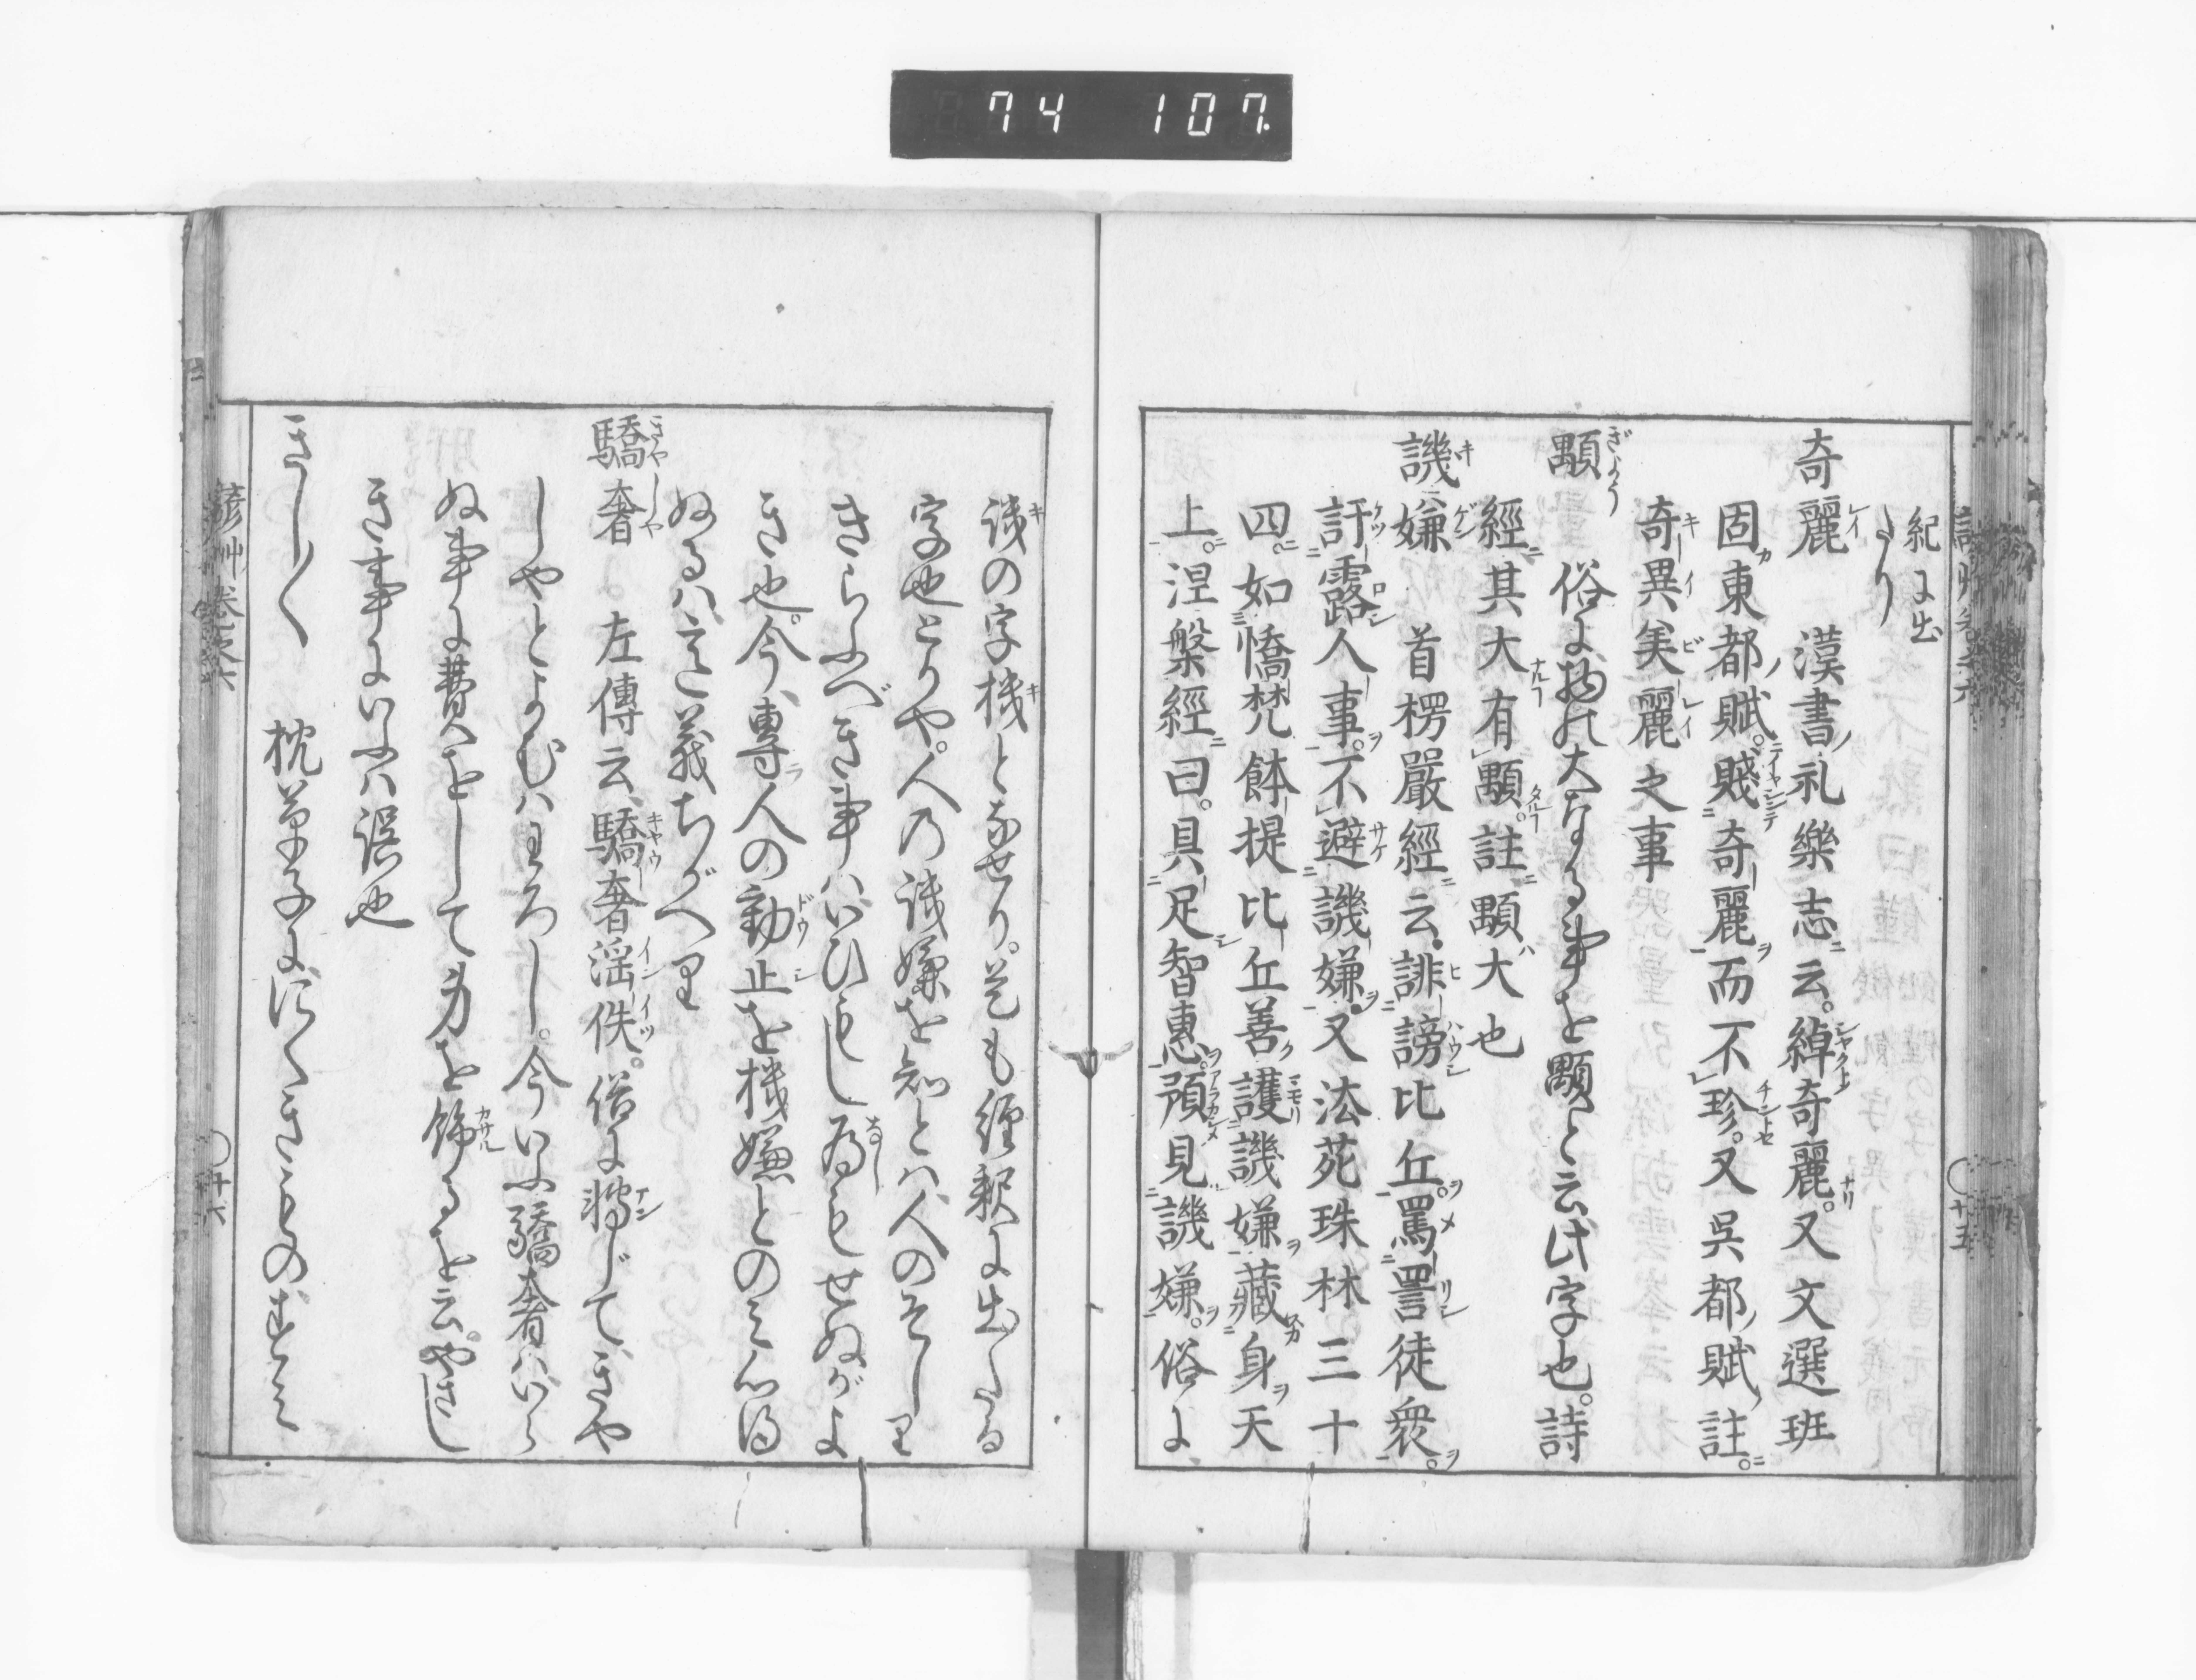 74 107
紀に出
たり
奇麗 漢書礼樂志云。綽奇麗。又文選班
固東都賦。賤奇麗而不珍。又呉都賦註。
奇異美麗之事
顒 俗に物の大なる事を顒と云此字也。詩
經其大有顒。註顒大也
譏嫌 首楞嚴經云。誹謗比丘。罵詈徒衆。
訐露人事。不避譏嫌。又法苑珠林三十
四。如憍梵鉢提比丘善護譏嫌藏身天
上。涅槃經曰。具足智惠。預見譏嫌。俗に
譏の字機となせり。是も經釈に出たる
字也とかや。人の譏嫌を知とは人のそしり
きらふべき事はいひもし為もせぬがよ
き也。今、專人の動止を機嫌とのみ心得
ぬるは、これ義ちがへり
驕奢 左傳云、驕奢淫佚。俗に轉じて、きや
しやとよむはわろし。今いふ驕奢は、いら
ぬ事に費をして身を飾るを云。やさし
き事にいふは誤也
きら〱 枕草子に、にくきものゝ
諺艸 卷之六
十六
十五